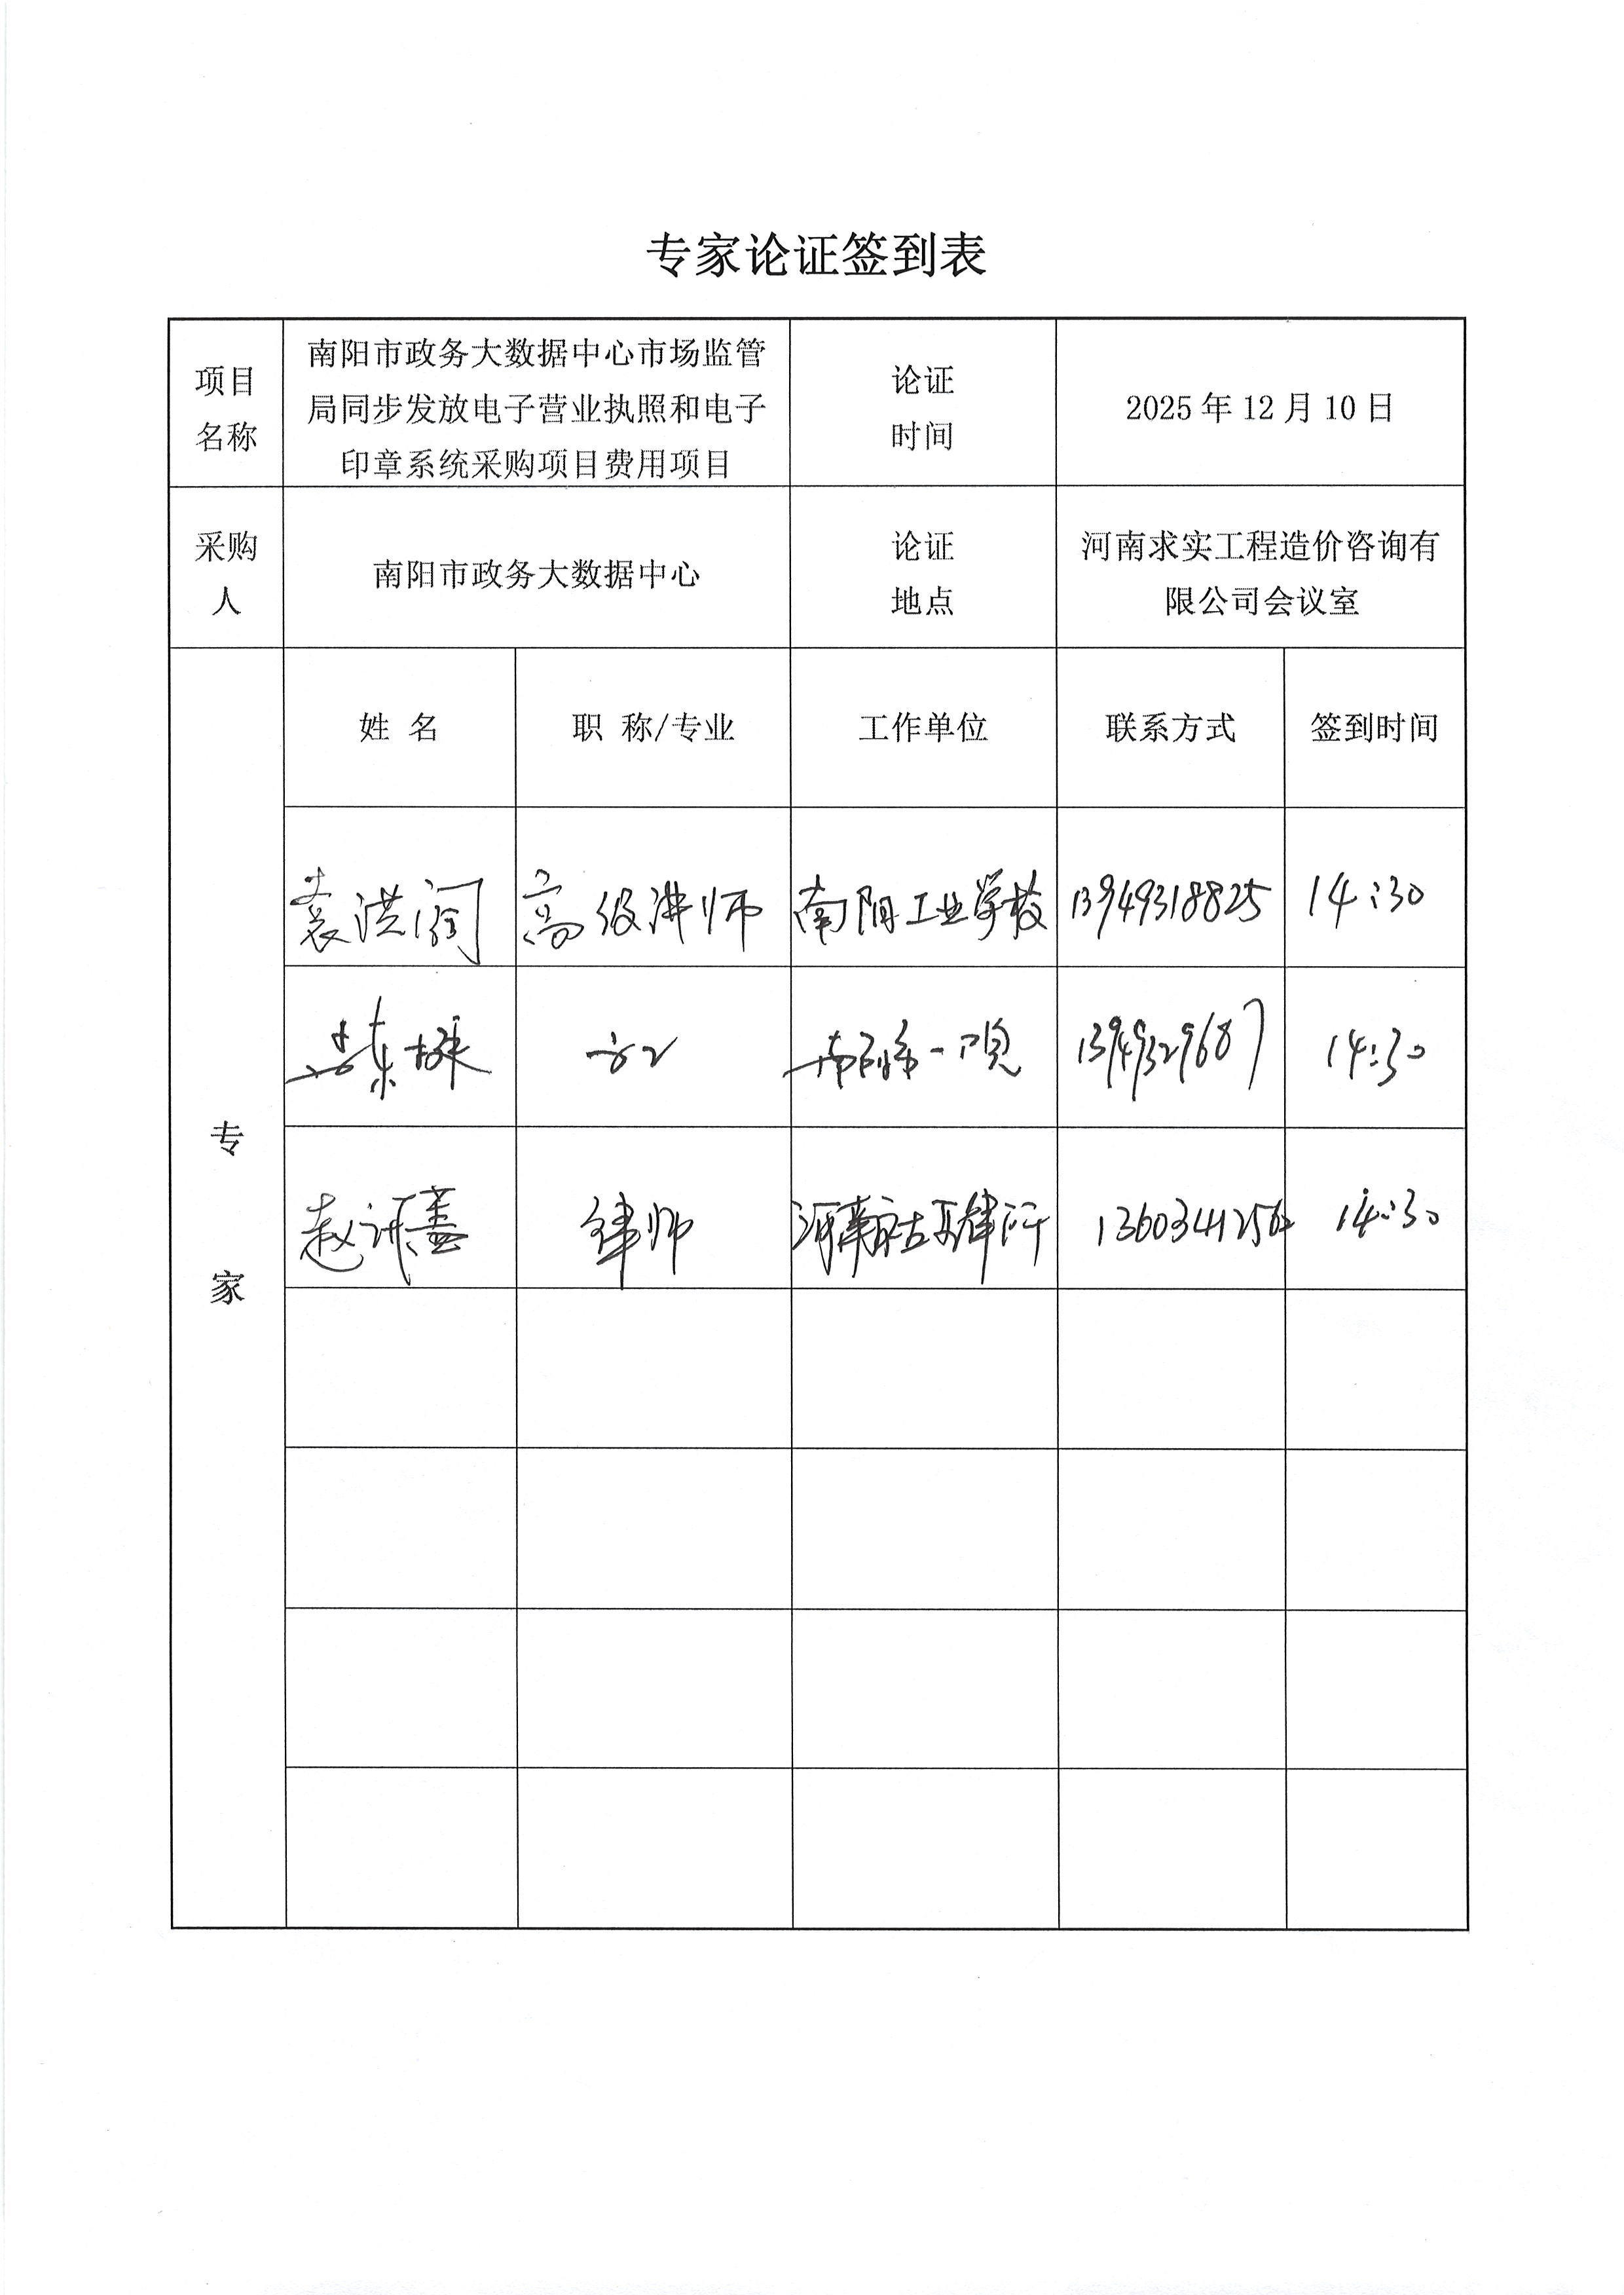 专家论证签到表
项目
名称
南阳市政务大数据中心市场监管
局同步发放电子营业执照和电子
印章系统采购项目费用项目
论证
时间
2025年12月10日
采购
人
南阳市政务大数据中心
论证
地点
河南求实工程造价咨询有
限公司会议室
专
家
姓 名
职 称/专业
工作单位
联系方式
签到时间
袁洪
高级讲师
南阳工业学校
13949318825
14:30
14:30
赵
律师
14:30